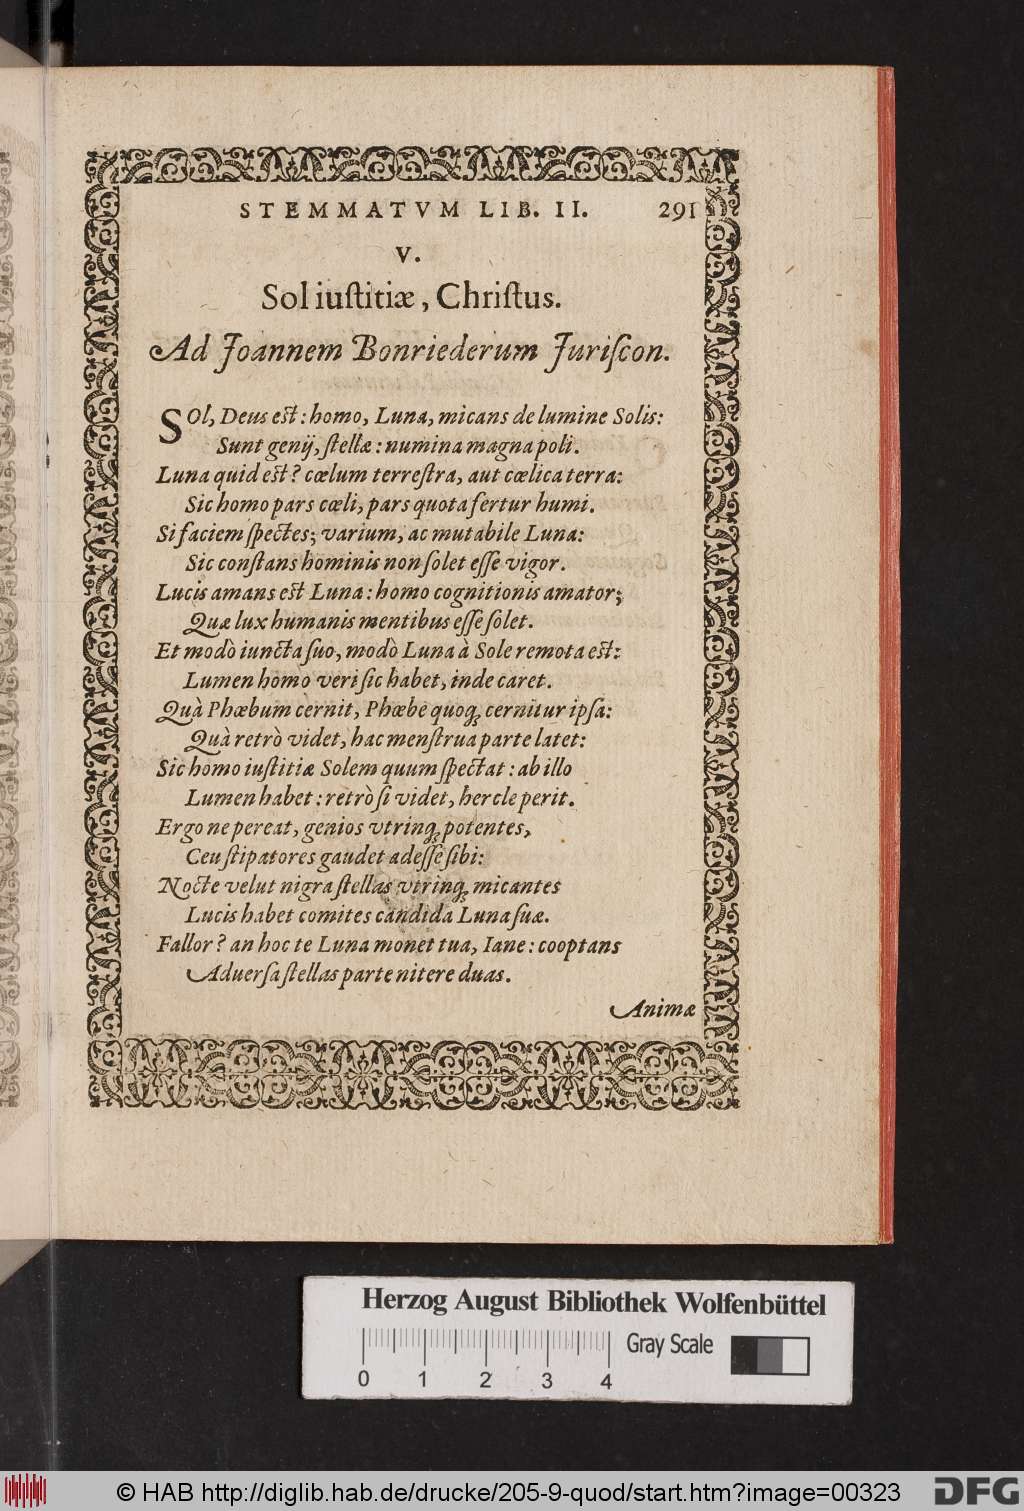 STEMMATVM LIB. II. 291
V.
Sol iuſtitiæ, Chriſtus.
Ad Joannem Bonriederum Juriſcon.
SOl, Deus est: homo, Luna, micans de lumine Solis:
Sunt genij, ſtellæ: numina magna poli.
Luna quid est? cœlum terreſtra, aut cœlica terra:
Sic homo pars cœli, pars quota fertur humi.
Si faciem ſpectes; varium, ac mutabile Luna:
Sic conſtans hominis non ſolet eſſe vigor.
Lucis amans est Luna: homo cognitionis amator;
Quæ lux humanis mentibus eſſe ſolet.
Et modò iuncta ſuo, modò Luna à Sole remota est:
Lumen homo veri ſic habet, inde caret.
Quà Phœbum cernit, Phœbe quoq; cernitur ipſa:
Quà retrò videt, hac menſtrua parte latet:
Sic homo iuſtitiæ Solem quum ſpectat: ab illo
Lumen habet: retrò ſi videt, hercle perit.
Ergo ne pereat, genios vtrinq; potentes,
Ceu ſtipatores gaudet adeſſe ſibi:
Nocte velut nigra ſtellas vtrinq; micantes
Lucis habet comites candida Luna ſuæ.
Fallor? an hoc te Luna monet tua, Iane: cooptans
Aduerſa ſtellas parte nitere duas.
Animæ
Herzog August Bibliothek Wolfenbüttel
Gray Scale
0 1 2 3 4
© HAB http://diglib.hab.de/drucke/205-9-quod/start.htm?image=00323
DFG